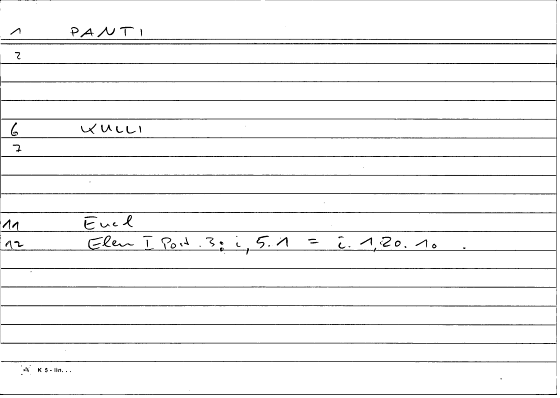 1 PANTI
2
6 KULLI
7
11 Eucl
12 Elem I Post. 3: i, 5. 1 = i. 1,20. 10 .
K 5 - lin...